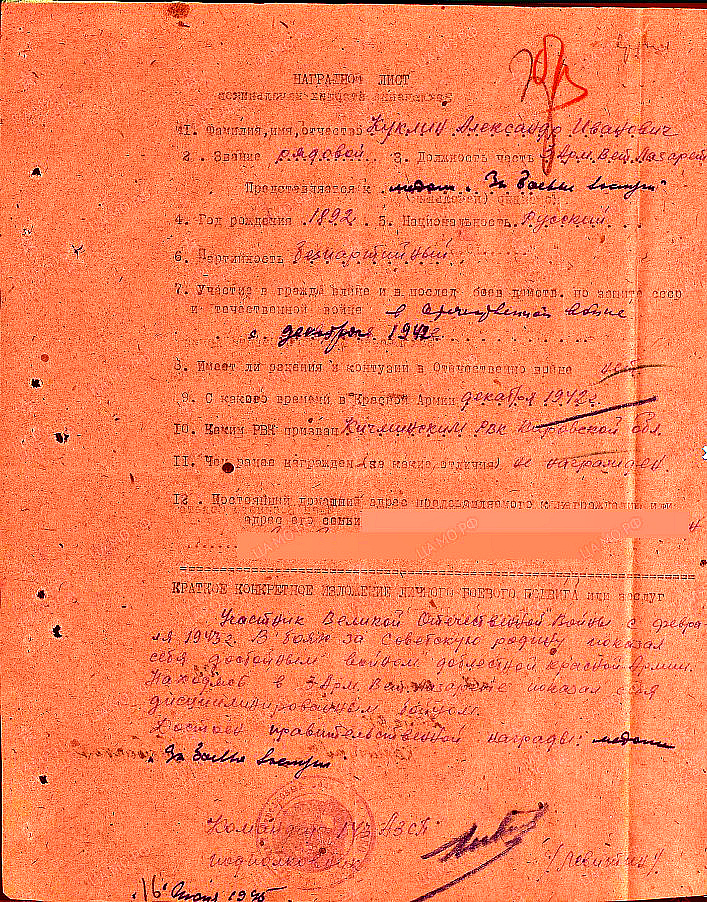 НАГРАДНОЙ ЛИСТ
1. Фамилия, имя, отчество Куклин Александр Иванович
2. Звание рядовой 3. Должность часть 3 Арм. Вет. Лазарет
Представляется к медали "За боевые заслуги"
4. Год рождения 1892 5. Национальность Русский
6. Партийность Безпартийный
7. Участие в гражд. войне и в послед. боев. действ. по защите ссср
и отечественной войне в Отечественной войне
с декабря 1942г.
8. Имеет ли ранения и контузии в Отечественно войне нет
9. С какого времени в Красной Армии декабря 1942г.
10. Каким РВК призван Кичминским РВК Кировской обл.
11. Чем ранее награжден (за какие отличия) не награжден
12. Постоянный домашний адрес представляемого к награждению или
адрес его семьи
КРАТКОЕ КОНКРЕТНОЕ ИЗЛОЖЕНИЕ ЛИЧНОГО БОЕВОГО ПОДВИГА или заслуг
Участник Великой Отечественной Войны с февра-
ля 1943г. В бояж за Советскую родину показал
себя достойным войном доблестной красной Армии.
Находясь в 3 Арм. Вет. Лазарете показал себя
дисциплинированным бойцом.
Достоен правительственной награды: медали
"За боевые заслуги
Командир 143 АЗСП
подполковник /Левитин/
"16" Июня 1945